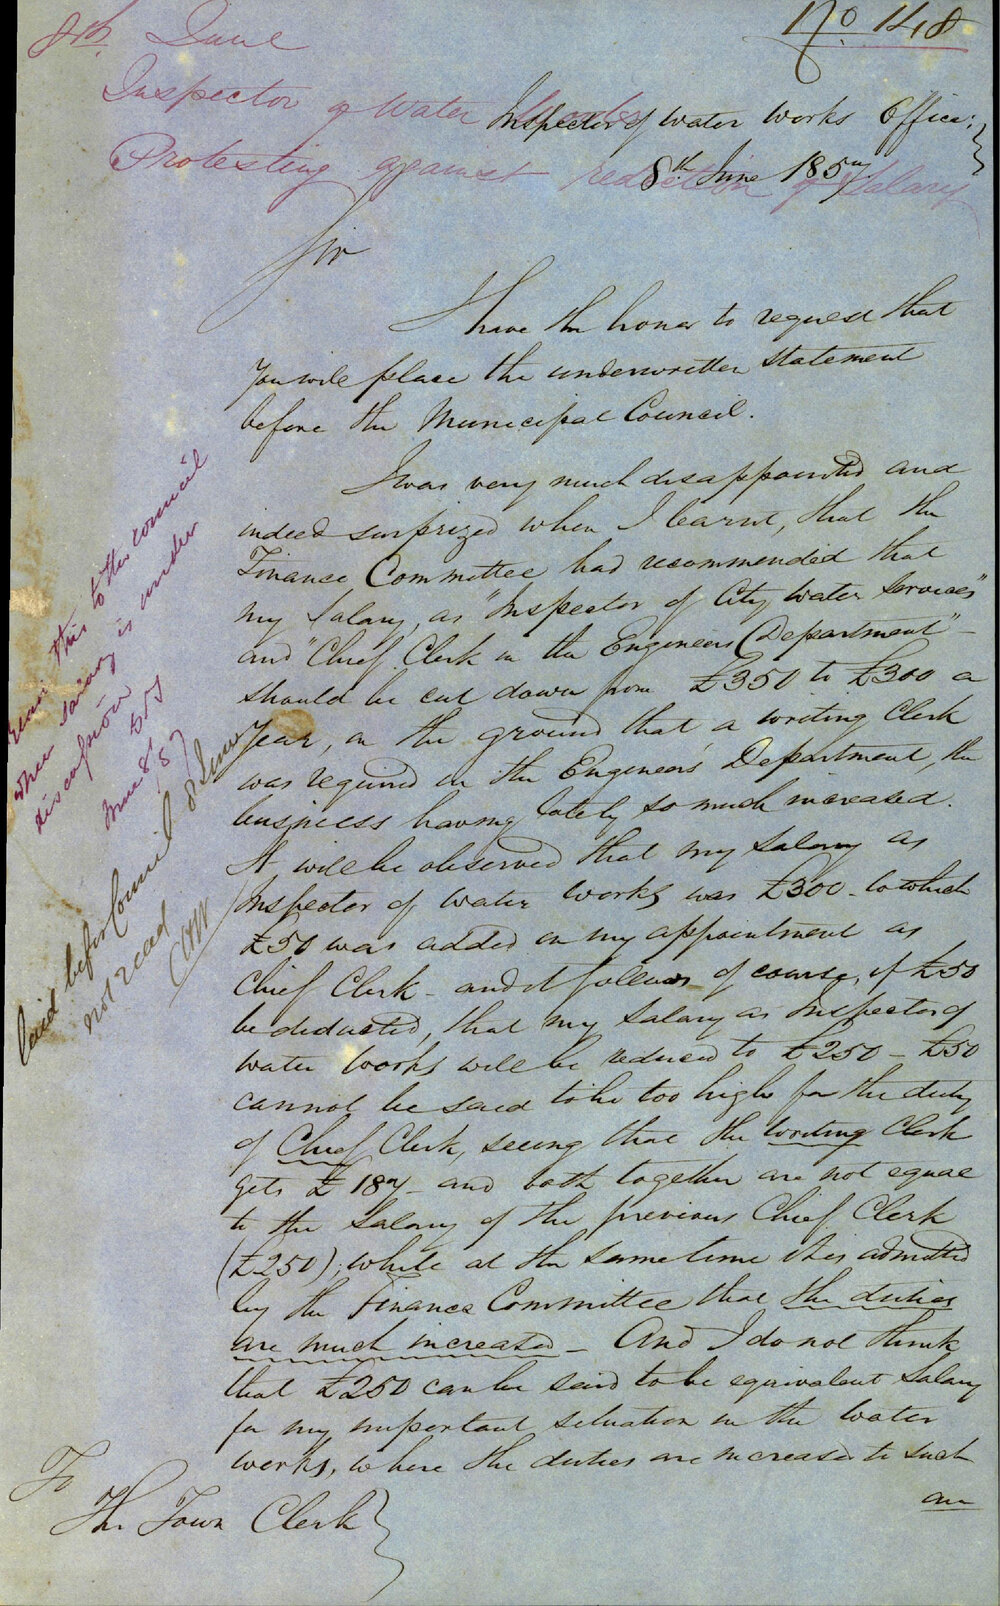 No 148
8th June
Inspector of Water Works
Protesting against reduction of Salary
Inspector of Water Works Office;
8th June 1857.
Sir
I have the honor to request that
you will place the underwritten statement
before the Municipal Council.
I was very much disappointed and
indeed surprized when I learnt, that the
Finance Committee had recommended that
my Salary, as "Inspector of City Water Services"
and "Chief Clerk in the Engineers Department" -
should be cut down from £350 to £300 a
year, on the ground that a writing Clerk
was required in the Engineer's Department, the
business having lately so much increased.
It will be observed that my Salary as
Inspector of Water Works was £300 - to which
£50 was added on my appointment as
Chief Clerk - and it follows of course, if £50
be deducted, that my Salary as Inspector of
Water Works will be reduced to £250 - £50
cannot be said to be too high for the duty
of Chief Clerk, seeing that the writing Clerk
gets £187 - and both together are not equal
to the Salary of the previous Chief Clerk
(£250); while at the same time it is admitted
by the Finance Committee that the duties
are much increased - And I do not think
that £250 can be said to be equivalent Salary
for my important situation in the Water
Works, where the duties are increased to such
an
To
The Town Clerk
this to the council
when salary is under
discussion
June 8th
1857
laid before Council 8 June
not read